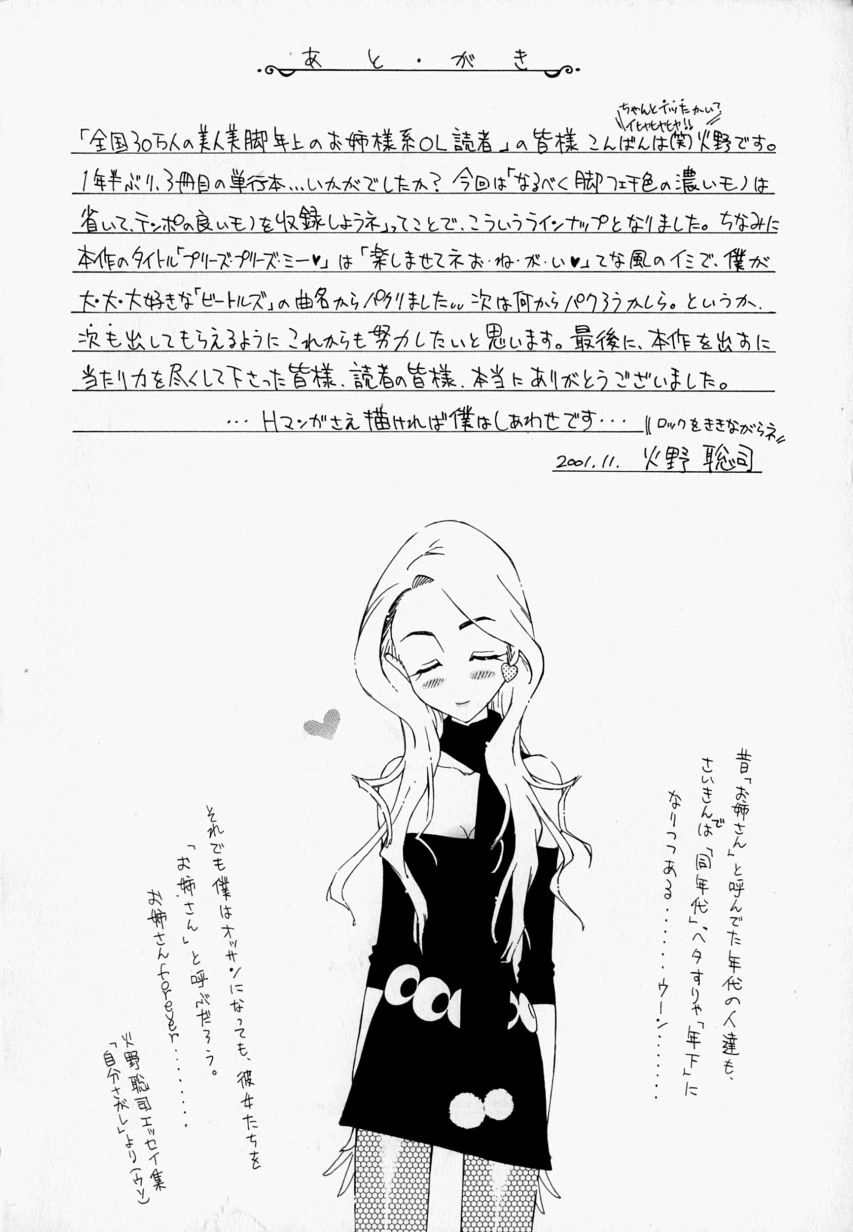 あと・がき
ちゃんとボツたかいて
イヒャヒャヒャ!!
「全国30万人の美人美脚年上のお姉様系OL読者」の皆様 こんばんは(笑)火野です。
1年半ぶり、3冊目の単行本…いかがでしたか? 今回は「なるべく脚フェチ色の濃いモノは
省いて、テンポの良いモノを収録しようネ」ってことで、こういうラインナップとなりました。ちなみに
本作のタイトル「プリーズ・プリーズ・ミー♥」は「楽しませてネお・ね・が・い♥」てな風のイミで、僕が
大・大・大好きな「ビートルズ」の曲名からパクリました。次は何からパクろうかしら。というか、
次も出してもらえるように これからも努力したいと思います。最後に、本作を出すに
当たり力を尽くして下さった皆様、読者の皆様、本当にありがとうございました。
…Hマンガさえ描ければ僕はしあわせです…
ロックをききながらネ
2001.11. 火野 聡司
昔「お姉さん」と呼んでた年代の人達も、
さいきんでは「同年代」、ヘタすりゃ「年下」に
なりつつある……ウーン……
それでも僕はオッサンになっても、彼女たちを
「お姉さん」と呼ぶだろう。
お姉さんforever……
火野聡司エッセイ集
「自分さがし」より(ウソ)